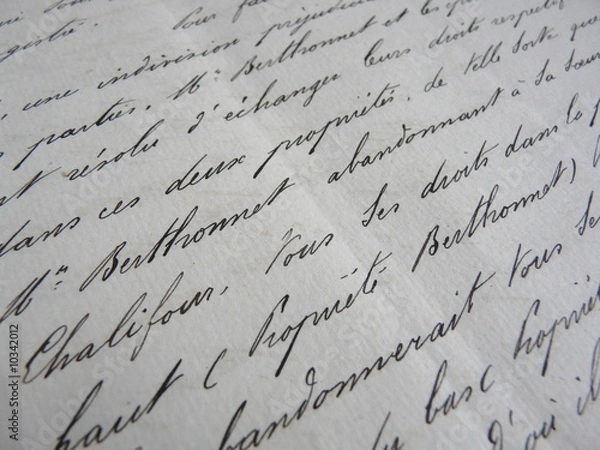 Pour fa
registré.
une indivision préjudici
parties. Mr Berthonnet et les ép
nt résolu d'échanger leurs droits respectif
dans ces deux propriétés. de telle sorte que
Mr Berthonnet abandonnant à sa sœur
Chalifour, tous ses droits dans la p
haut (Propriété Berthonnet)
abandonnerait tous se
du bas (Proprié
d'où il
Adobe Stock | #10342012